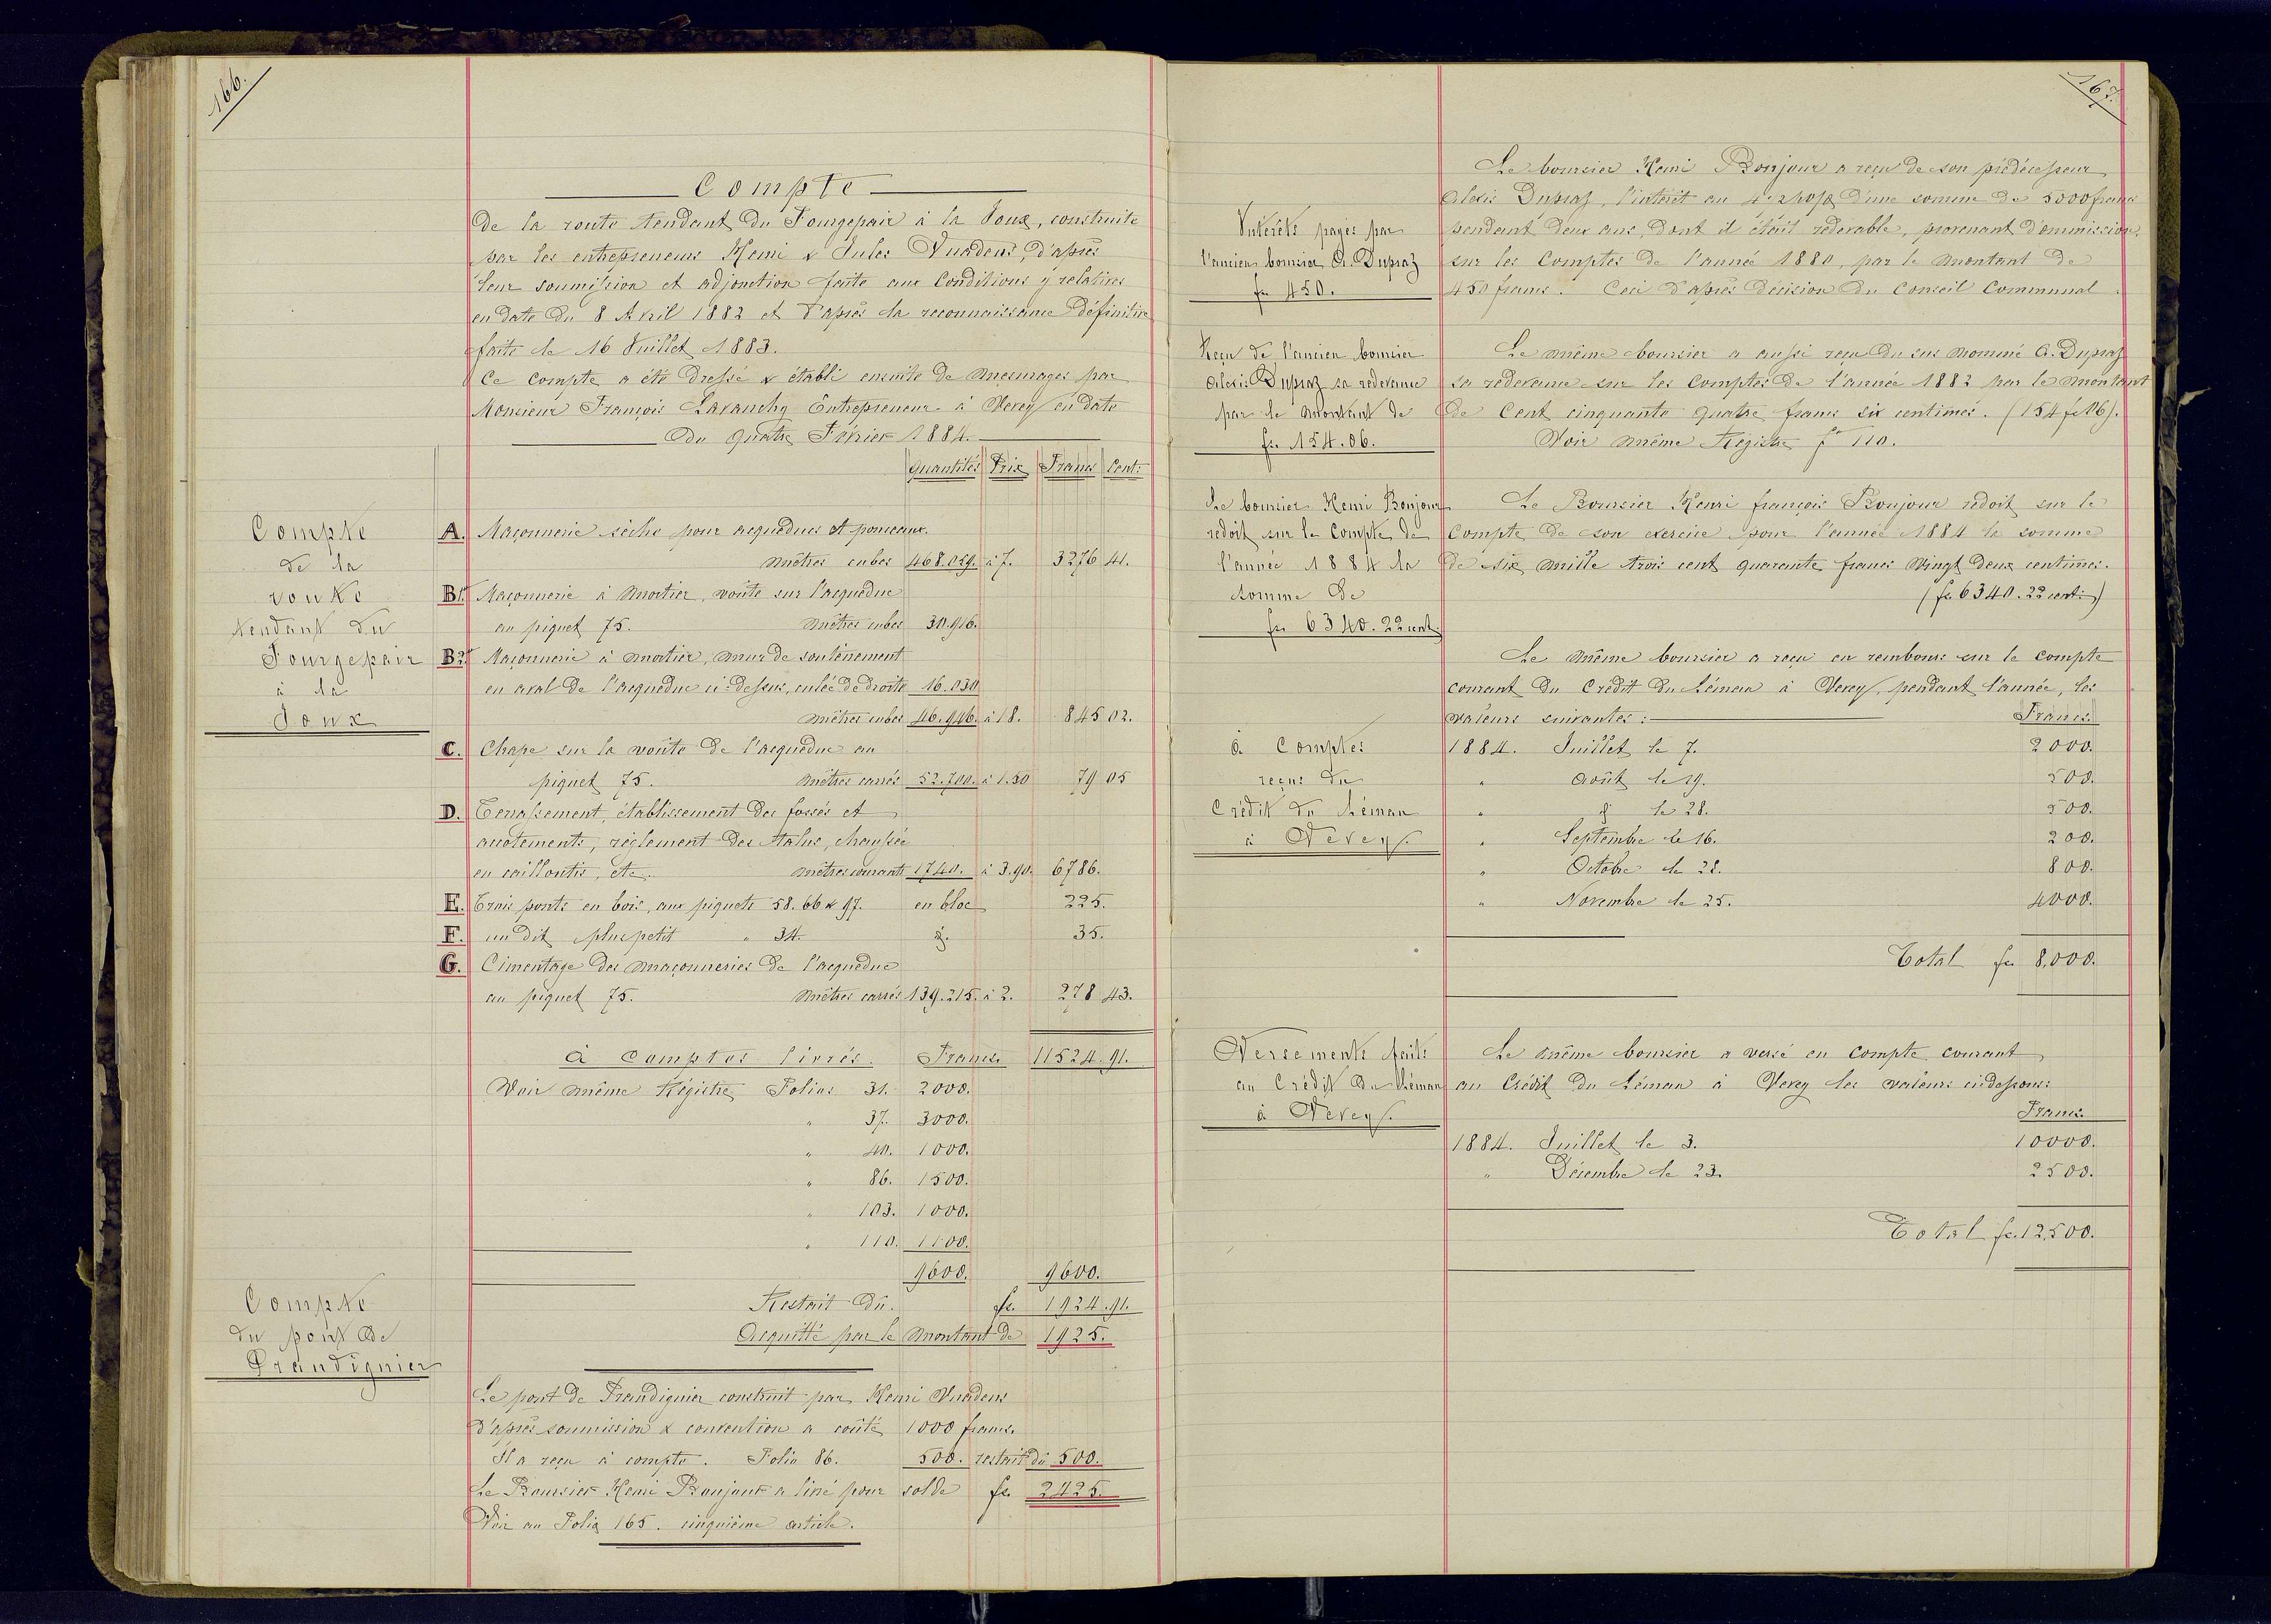 166.
Compte
de la route tendant du Fourgepair à la Joux, construite
par les entrepreneurs Henri & Jules Vuadens, d'après
leur soumission et adjonction faite aux Conditions y relatives
en date du 8 Avril 1882 et d'après la reconnaissance définitive
faite le 16 Juillet 1883.
Ce compte a été dressé & établi ensuite de mesurages par
Monsieur François Lavanchy Entrepreneur à Vevey en date
du quatre Février 1884.
quantités Prix Francs Cent:
Compte
de la
route
tendant du
Fourgepair
à la
Joux
A. Maçonnerie sèche pour acqueducs et ponceaux.
mètres cubes 468.059. à 7. 3276 41.
B1. Maçonnerie à mortier, voûte sur l'acqueduc
au piquet 75. mètres cubes 30.916.
B2. Maçonnerie à mortier, mur de soutènement
en aval de l'acqueduc ci-dessus, culée de droite 16.030
mètres cubes 46.946. à 18. 845 02.
C. Chape sur la voûte de l'acqueduc au
piquet 75. mètres carrés 52.700. à 1.50 79 05
D. Terrassement, établissement des fossés et
accotements, règlement des talus, chaussée
en cailloutis, etc. mètres courants 1740. à 3.90. 6786.
E. Trois ponts en bois, aux piquets 58. 66 & 97. en bloc 225.
F. un dit plus petit " 34. d°. 35.
G. Cimentage des maçonneries de l'acqueduc
au piquet 75. mètres carrés 139.215. à 2. 278 43.
à Comptes livrés. Francs. 11524.91.
Voir même Régistre Folios 31. 2000.
" 37. 3000.
" 40. 1000.
" 86. 1500.
" 103. 1000.
" 110. 1100.
9600. 9600.
Restait dû. fr. 1924.91.
Acquitté par le montant de 1925.
Compte
du pont de
Prandignier
Le pont de Prandignier construit par Henri Vuadens
d'après soumission & convention a coûté 1000 francs.
Il a reçu à compte. Folio 86. 500. restait dû 500.
Le Boursier Henri Bonjour a livré pour solde fr. 2425.
Voir au Folio 165. cinquième article.
167.
Intérêts payés par
l'ancien boursier A. Dupraz
fr. 450.
Le boursier Henri Bonjour a reçu de son prédécesseur
Alexis Dupraz, l'intérêt au 4½ pop d'une somme de 5000 francs
pendant deux ans, dont il était redevable, provenant d'ommission
sur les Comptes de l'année 1880, par le montant de
450 francs. Ceci d'après décision du Conseil Communal.
Reçu de l'ancien boursier
Alexis Dupraz sa redevance
par le montant de
fr. 154.06.
Le même boursier a aussi reçu du sus nommé A. Dupraz
sa redevance sur les Comptes de l'année 1882 par le montant
de Cent cinquante quatre francs six centimes. (154 fr 06).
Voir même Régistre f° 110.
Le boursier Henri Bonjour
redoit sur le Compte de
l'année 1884 la
somme de
fr. 6340.22 cent.
Le Boursier Henri françois Bonjour redoit sur le
Compte de son exercice pour l'année 1884 la somme
de six mille trois cent quarante francs Vingt deux centimes.
(fr. 6340.22 cent:)
Le même boursier a reçu en rembours sur le compte
courant du Crédit du Léman à Vevey, pendant l'année, les
valeurs suivantes: Francs.
à Comptes
reçus du
Crédit du Léman
à Vevey.
1884. Juillet le 7. 2000.
" Août le 19. 500.
" d° le 28. 500.
" Septembre le 16. 200.
" Octobre le 28. 800.
" Novembre le 25. 4000.
Total fr. 8,000.
Versements faits
au Crédit du Léman
à Vevey.
Le même boursier a versé en Compte courant
au Crédit du Léman à Vevey les valeurs cidessous:
Francs.
1884. Juillet le 3. 10000.
" Décembre le 23. 2500.
Total fr. 12,500.